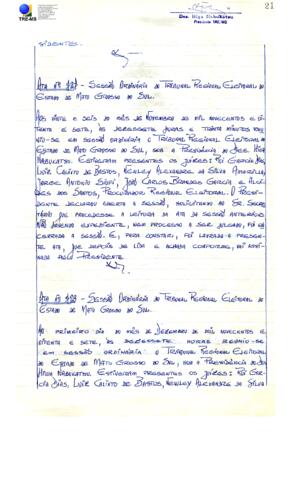 21
TRE-MS
Des. Higa Nabukatsu
Presidente TRE-MS
- Sessão Ordinária do Tribunal Regional Eleitoral do
Estado de Mato Grosso do Sul.
Aos vinte e seis do mês de novembro de mil novecentos e oi-
tenta e sete, às dezessete horas e trinta minutos reu-
niu-se em sessão ordinária o Tribunal Regional Eleitoral
do Estado de Mato Grosso do Sul, sob a Presidência do Des. Higa
Nabukatsu. Estiveram presentes os Juízes: Rui Garcia Dias,
Luiz Calixto de Bastos, Amarilla,
Jorge Antonio Siufi, José Carlos Brandes Garcia e
dos Santos, Procurador Regional Eleitoral. O Presi-
dente declarou aberta a sessão, solicitando ao Sr. Secre-
tário que procedesse a leitura da ata da sessão anterior.
Não havendo expediente, nem processo a ser julgado, foi en-
cerrada a sessão. E, para constar, foi lavrada a presen-
te ata, que depois de lida e achada conforme, foi assi-
nada pelo Presidente
- Sessão Ordinária do Tribunal Regional Eleitoral do
Estado de Mato Grosso do Sul.
Ao primeiro dia do mês de dezembro de mil novecentos e
oitenta e sete, às dezessete horas reuniu-se
em sessão ordinária o Tribunal Regional Eleitoral
do Estado de Mato Grosso do Sul, sob a Presidência do Des.
Higa Nabukatsu. Estiveram presentes os Juízes: Rui Gar-
cia Dias, Luiz Calixto de Bastos, Alexandre da Silva